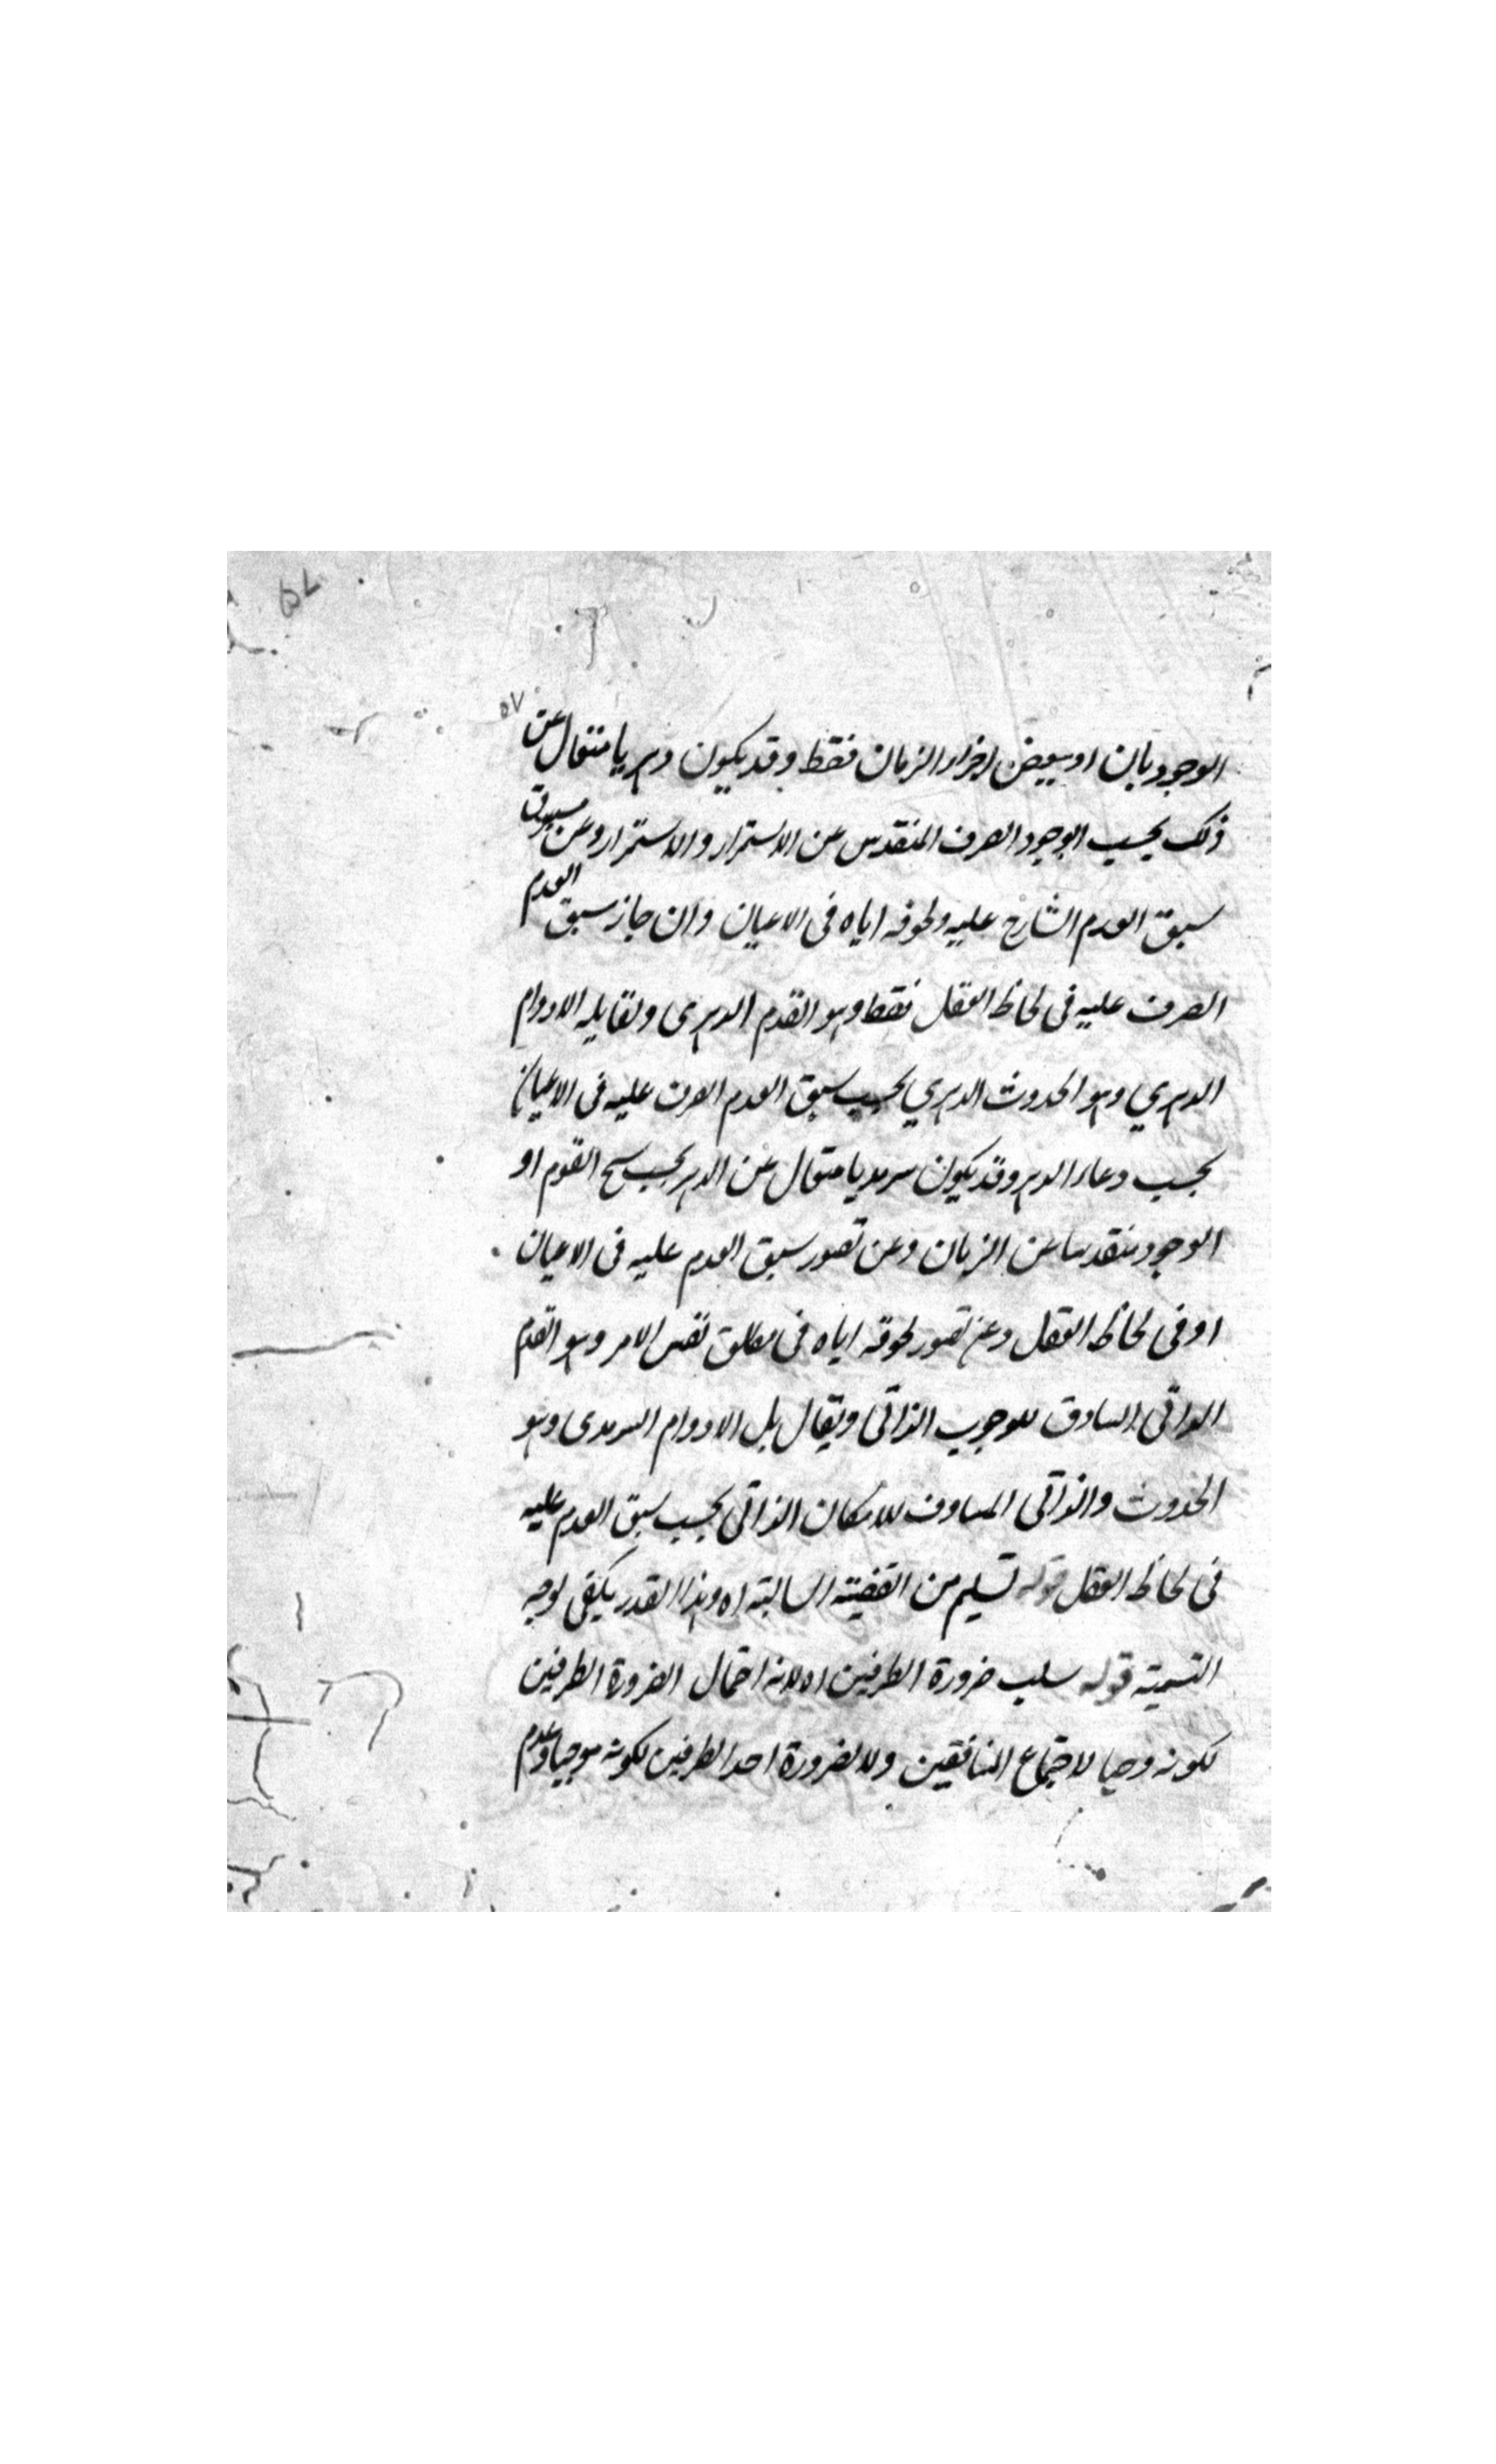 ٥٧
٥٧
الوجود بان او ببعض اجزاء الزمان فقط وقد يكون دهريا متعال عن
ذلك بحسب الوجود الصرف المتقدس عن الاستمرار والاستمرار وعن مسبوق
سبق العدم الشارح عليه ولحوقه اياه فى الاعيان وان جاز سبق العدم
الصرف عليه فى لحاظ العقل فقط وهو القدم الدهرى ويقابله الادوام
الدهري وهو الحدوث الدهري بحسب سبق العدم الصرف عليه فى الاعيان
بحسب وعاء الدهر وقد يكون سرمديا متعال عن الدهر بحسب سنح القوم او
الوجود متقدسا عن الزمان وعن تصور سبق العدم عليه فى الاعيان
او فى لحاظ العقل وعن تصور لحوقه اياه فى مطلق نفس الامر وهو القدم
الذاتى السادق للوجوب الذاتى ويقال بل الادوام السرمدى وهو
الحدوث والذاتى المساوف للامكان الذاتى بحسب سبق العدم عليه
فى لحاظ العقل قوله تسليم من القضية السالبة اه وهذا القدر يكفى لوجه
التسمية قوله سلب ضرورة الطرفين اه لانه احتمال الضرورة الطرفين
لكونه وحيا لاجتماع المنافقين ولا لضرورة احد الطرفين لكونه موجبا وعدم